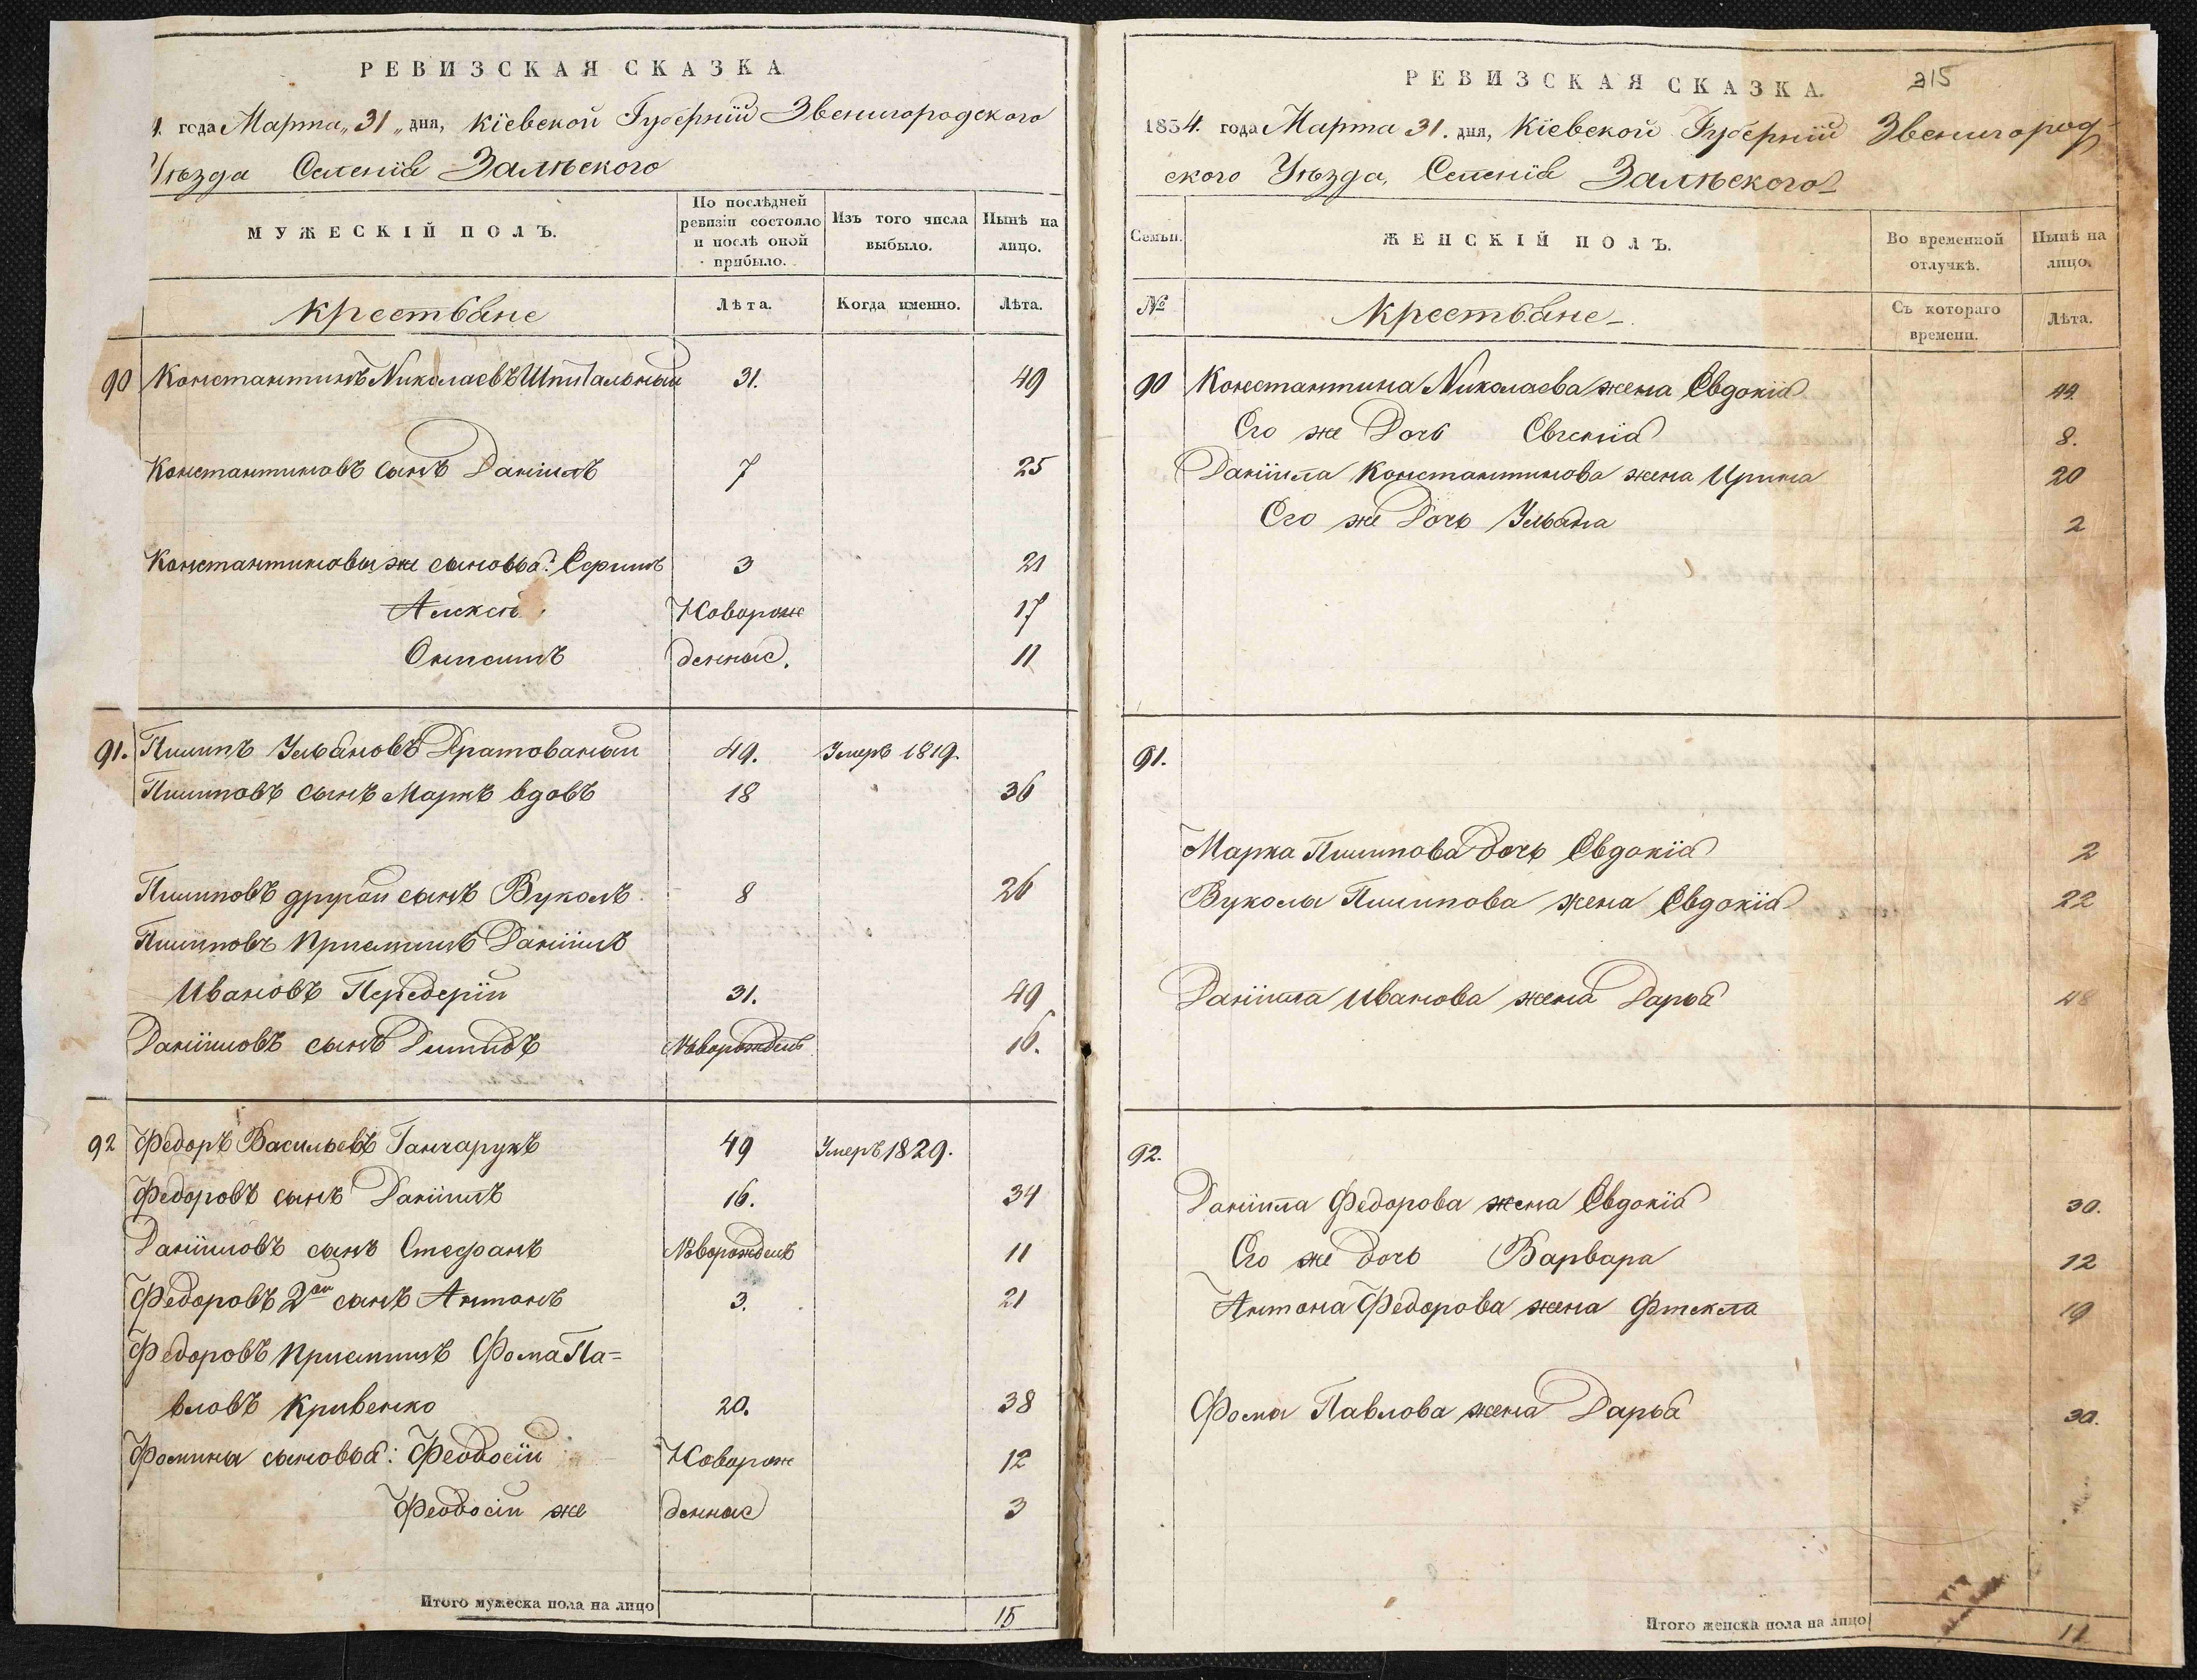 РЕВИЗСКАЯ СКАЗКА
4. года Марта „31„ дня, Кіевской Губерніи Звенигородского
Уѣзда Селенія Залѣского
МУЖЕСКІЙ ПОЛЪ.
По послѣдней ревизіи состояло и послѣ оной прибыло.
Изъ того числа выбыло.
Нынѣ на лицо.
Крестьяне
Лѣта.
Когда именно.
Лѣта.
90 Константинъ Николаевъ Шпитальный 31. 49
Константиновъ сынъ Даніилъ 7 25
Константиновы же сыновья: Ефимъ 3 21
Алексѣй Новорож 17
Антонъ денные. 11
91. Пилипъ Ульяновъ Дратованый 49. Умеръ 1819.
Пилиповъ сынъ Маркъ вдовъ 18 36
Пилиповъ другой сынъ Вуколъ 8 26
Пилиповъ пріемышъ Даніилъ
Ивановъ Передерій 31. 49
Даніиловъ сынъ Димидъ Новорожденъ 16.
92 Федоръ Васильевъ Ганчарукъ 49 Умеръ 1829.
Федоровъ сынъ Даніилъ 16. 34
Даніиловъ сынъ Стефанъ Новорожденъ 11
Федоровъ 2ой сынъ Антонъ 3. 21
Федоровъ пріемышъ Фома Па=
вловъ Кривенко 20. 38
Фомины сыновья: Феодосій Новорож 12
Феодосій же денные 3
Итого мужеска пола на лицо 15
РЕВИЗСКАЯ СКАЗКА.
315
1854. года Марта 31. дня, Кіевской Губерніи Звенигород-
ского Уѣзда, Селенія Залѣского
Семьи.
ЖЕНСКІЙ ПОЛЪ.
Во временной отлучкѣ.
Нынѣ на лицо.
№
Крестьяне
Съ котораго времени.
Лѣта.
90 Константина Николаева жена Евдокія 44.
Его же Дочь Евгенія 8.
Даніила Константинова жена Ирина 20
Его же Дочь Ульяна 2
91.
Марка Пилипова дочь Евдокія 2
Вукола Пилипова жена Евдокія 22
Даніила Иванова жена Дарья 48
92.
Даніила Федорова жена Евдокія 30.
Его же дочь Варвара 12
Антона Федорова жена Фтекла 19
Фомы Павлова жена Дарья 30.
Итого женска пола на лицо 11